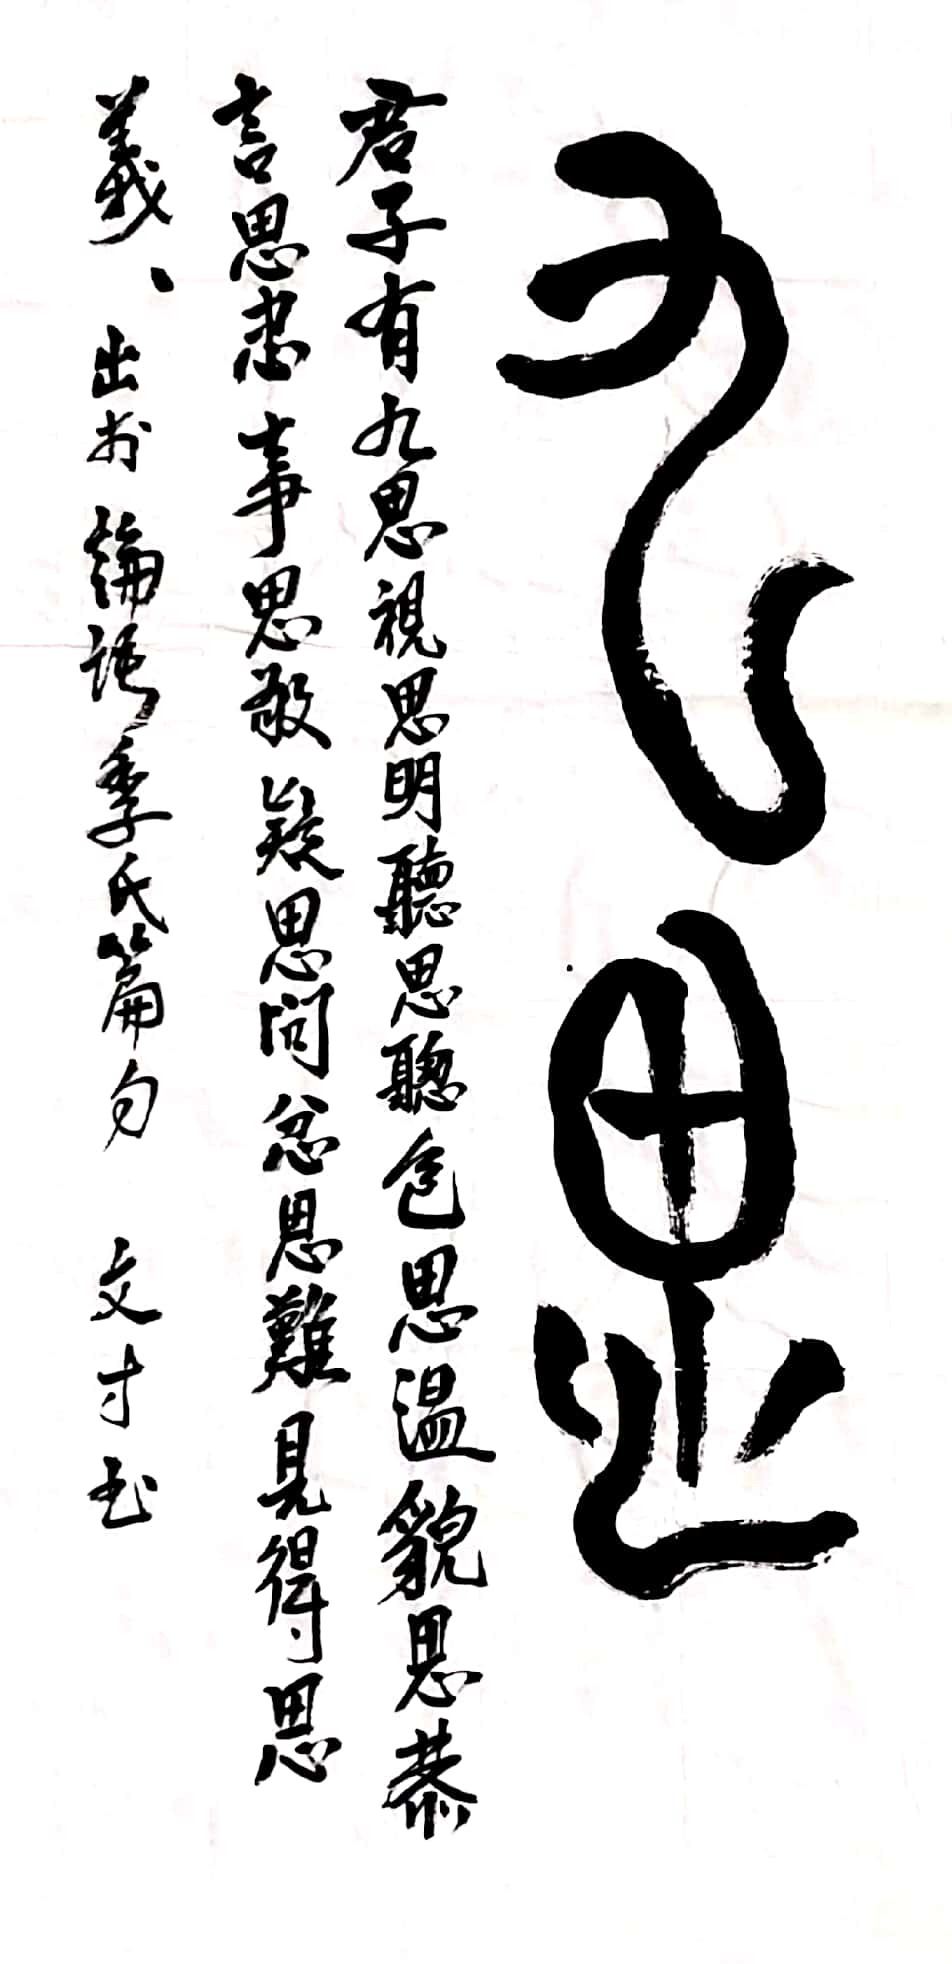 九思
君子有九思視思明聽思聰色思温貌思恭
言思忠事思敬疑思問忿思難見得思
義、出於論語季氏篇句 文寸书